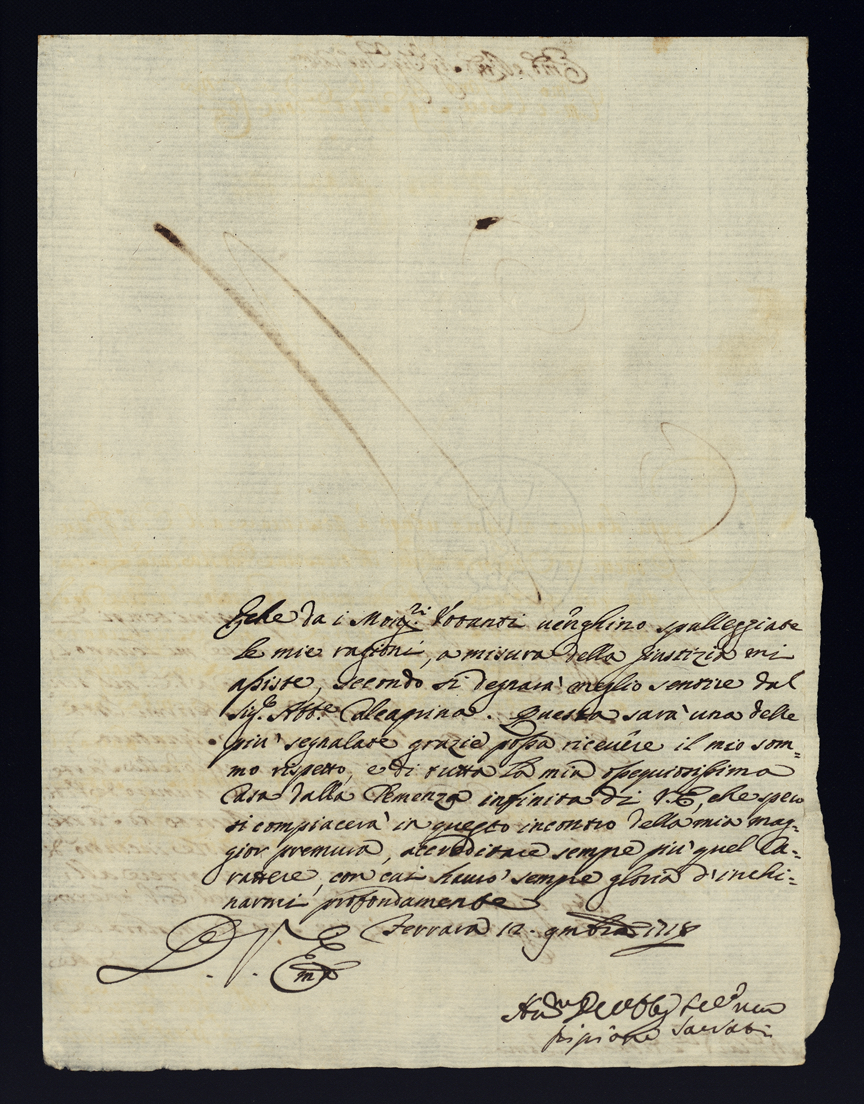 che da i Mong.ri Votanti venghino spalleggiate
le mie ragioni, a misura della giustizia mi
assiste, secondo si degnarà meglio sentire dal
Sig.e Abb.e Calcagnina. Questa sarà una delle
più segnalate grazie possa ricevere il mio som=
mo rispetto, e di tutta la mia ossequiosissima
Casa dalla Clemenza infinita di V.E, che però
si compiacerà in questo incontro della mia mag=
gior premura, accreditare sempre più quel Ca=
rattere, con cui havrò sempre gloria d'inchi=
narmi profondamente
Ferrara 12. 9mbre 1718
D. V. E
Em
Hu.mo De.mo Obb.
Scipione Sacrati